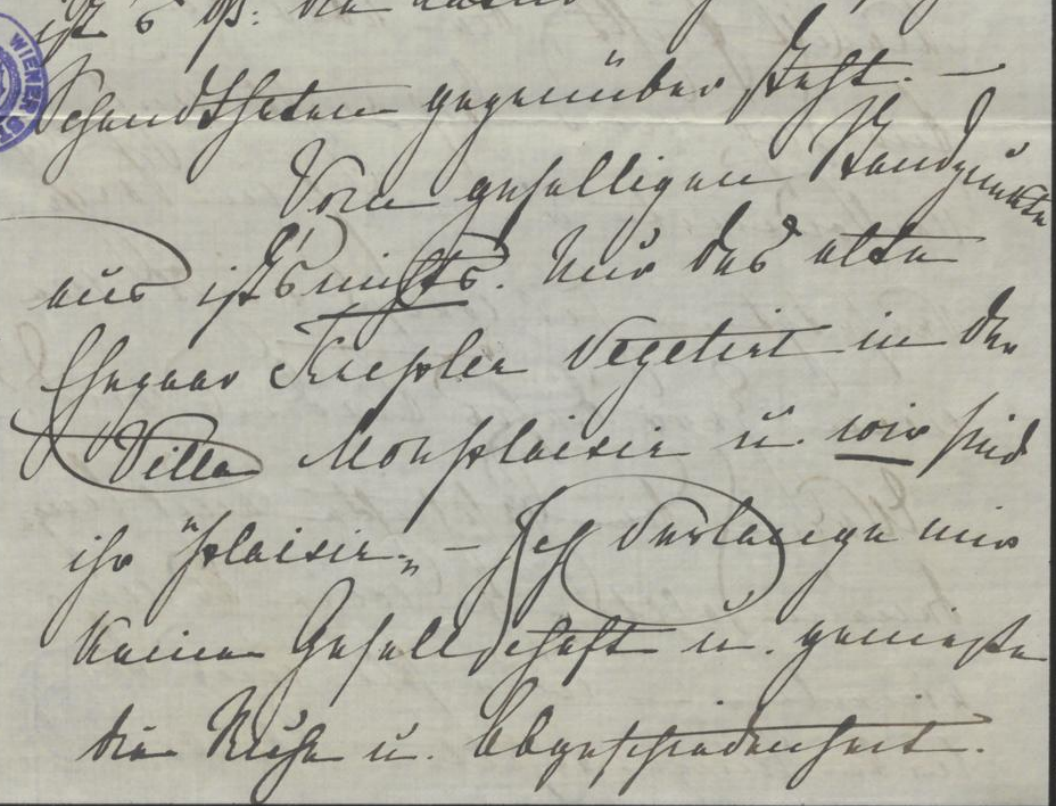 ist
Schandthaten gegenüber steht. —
Vom geselligen Standpunkte
aus ist's nichts. Nur das alte
Ehepaar vegetirt in der
Villa Monplaisir u. wir sind
ihr "plaisir„ — Ich verlange mir
keine Gesellschaft u. genieße
die Ruhe u. Abgeschiedenheit.
WIENER ST